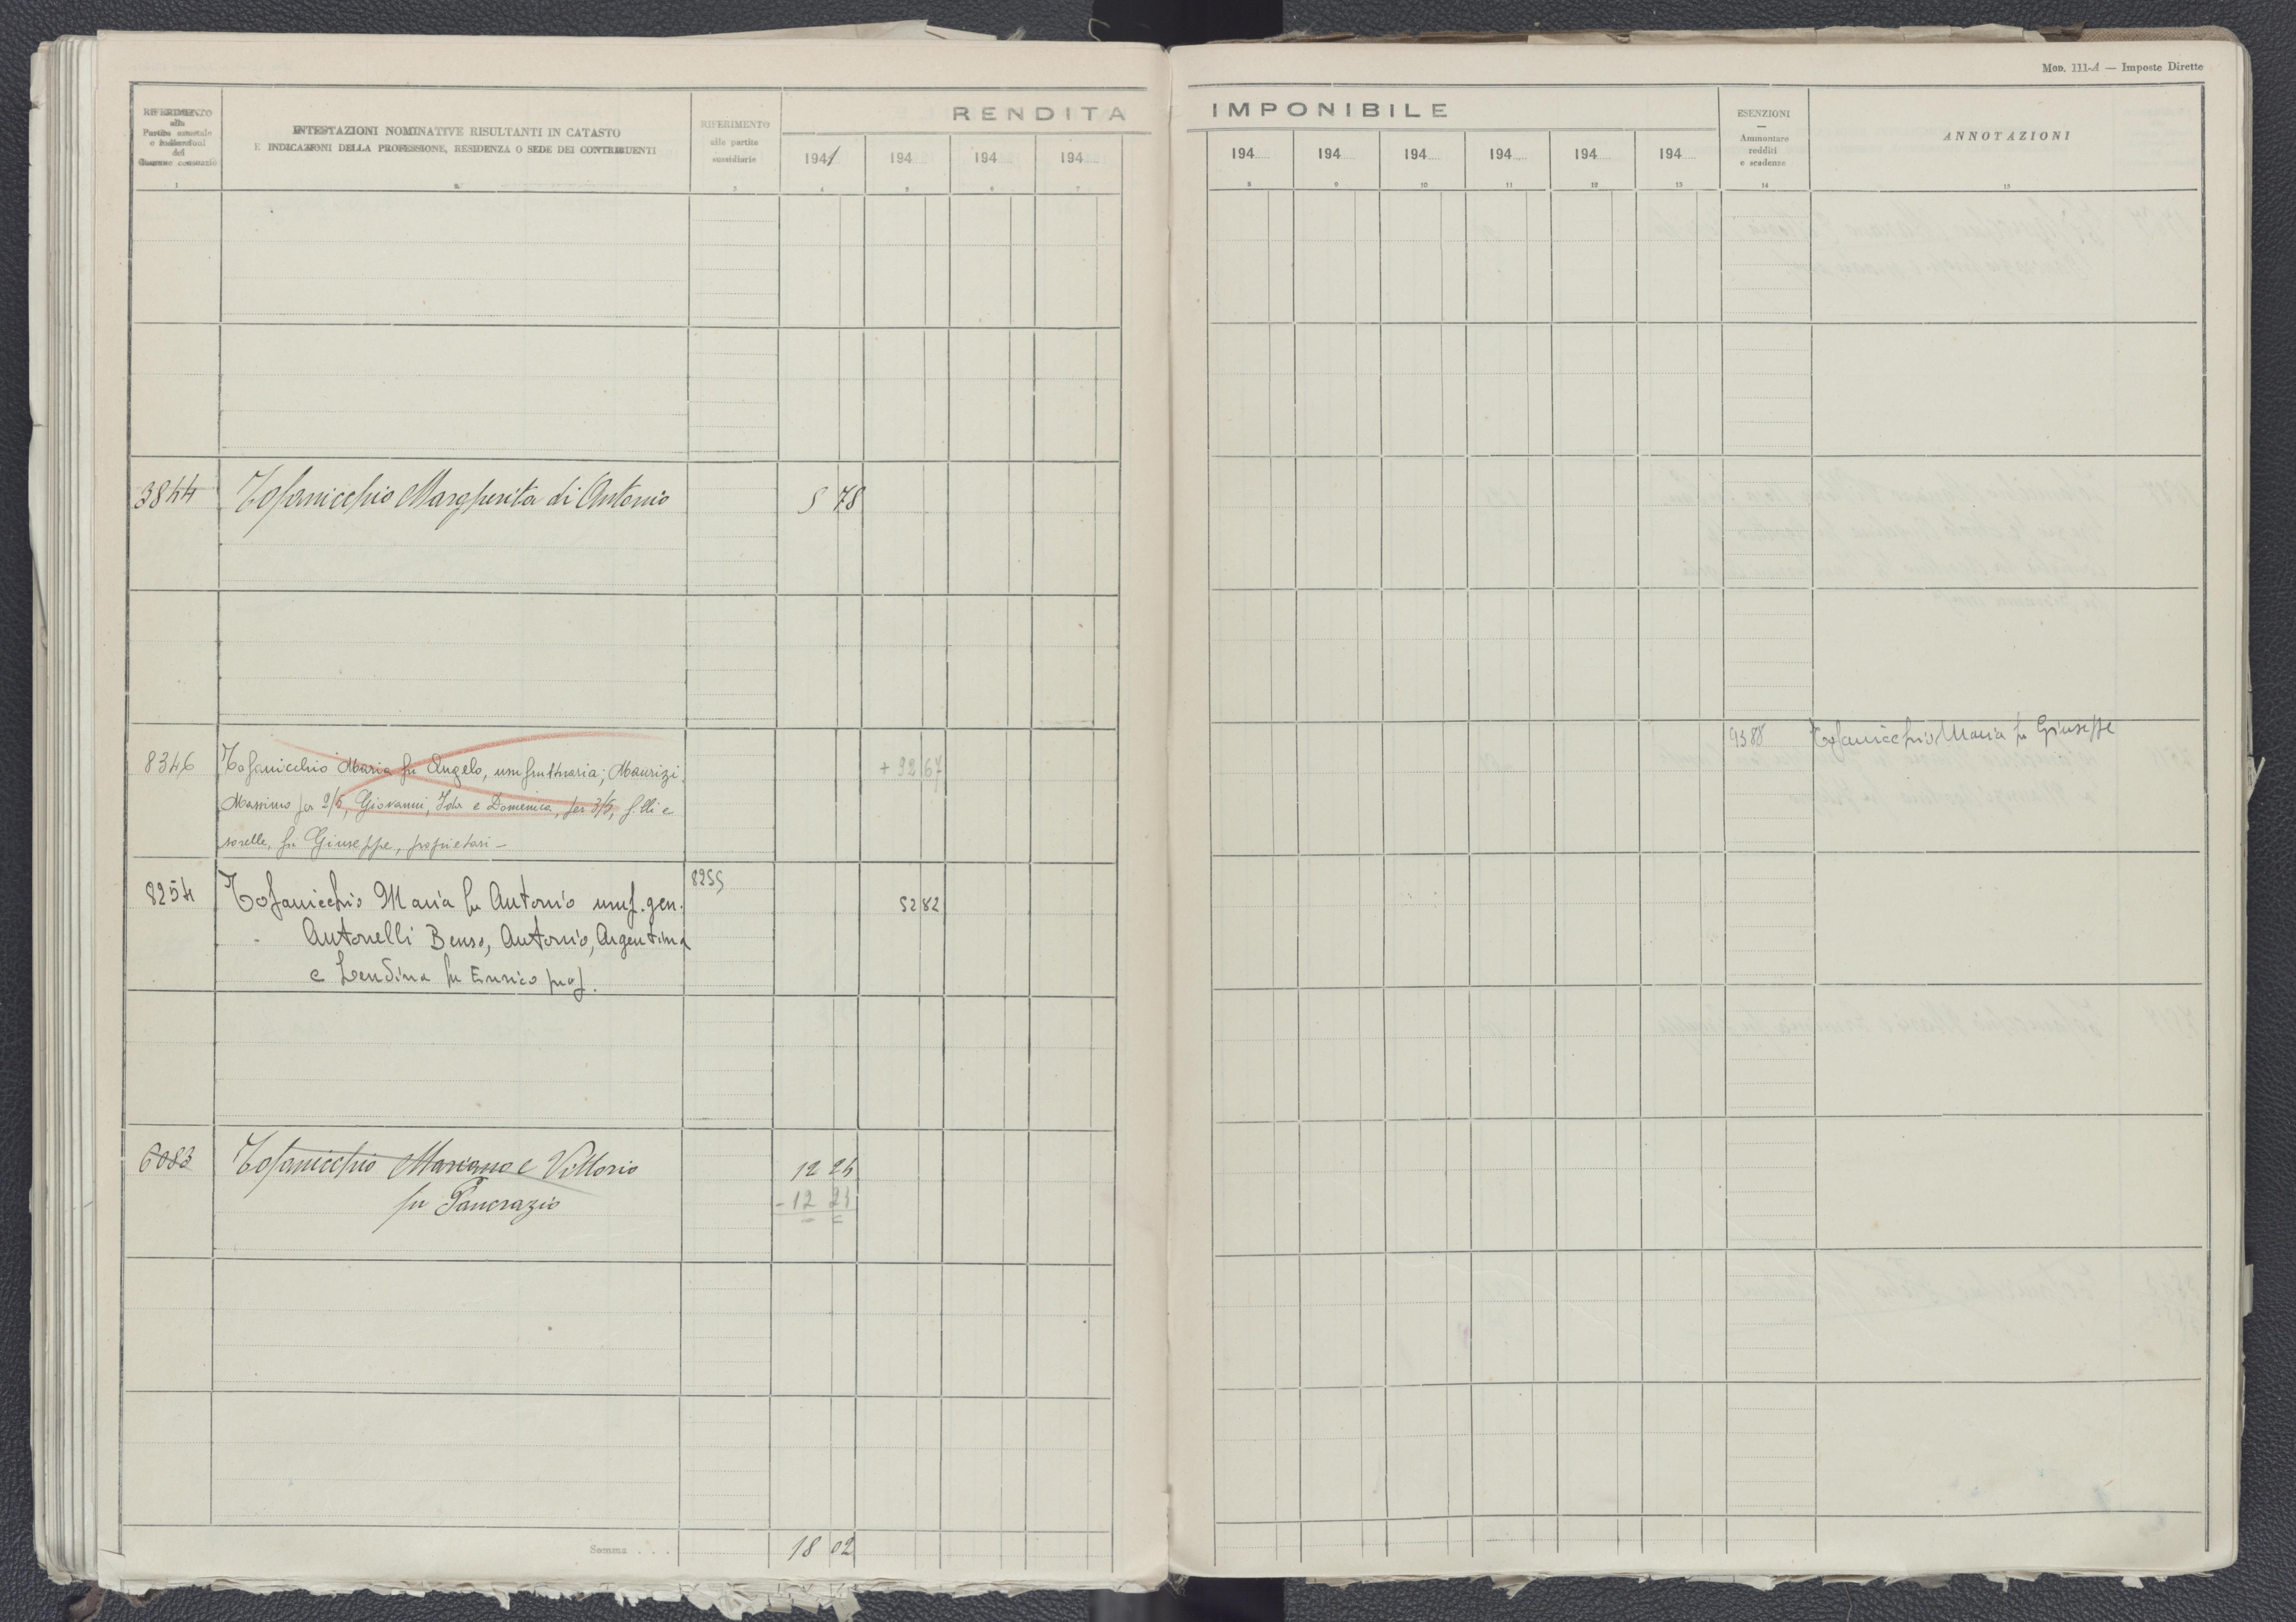 Mod. 111-A — Imposte Dirette
RIFERIMENTO
alla
Partita catastale
e
del
INTESTAZIONI NOMINATIVE RISULTANTI IN CATASTO
E INDICAZIONI DELLA PROFESSIONE, RESIDENZA O SEDE DEI CONTRIBUENTI
RIFERIMENTO
alle partite
sussidiarie
RENDITA IMPONIBILE
1941 194 194 194 194 194 194 194 194 194
ESENZIONI
—
Ammontare
redditi
e scadenze
ANNOTAZIONI
1 2 3 4 5 6 7 8 9 10 11 12 13 14 15
3844 Tofanicchio Margherita di Antonio 5 78
9388 Tofanicchio Maria fu Giuseppe
8346 Tofanicchio Maria fu Angelo, usufruttuaria; Maurizi + 92 67
Massimo per 2/5, Giovanni, Ida e Domenica, per 3/5, f.lli e
sorelle, fu Giuseppe, proprietari –
8254 Tofanicchio Maria fu Antonio usuf. gen. 8255 52 82
Antonelli Benso, Antonio, Argentina
e fu Enrico prop.
6083 Tofanicchio Mariano e Vittorio 12 24
fu Pancrazio - 12 24
Somma . . . 18 02